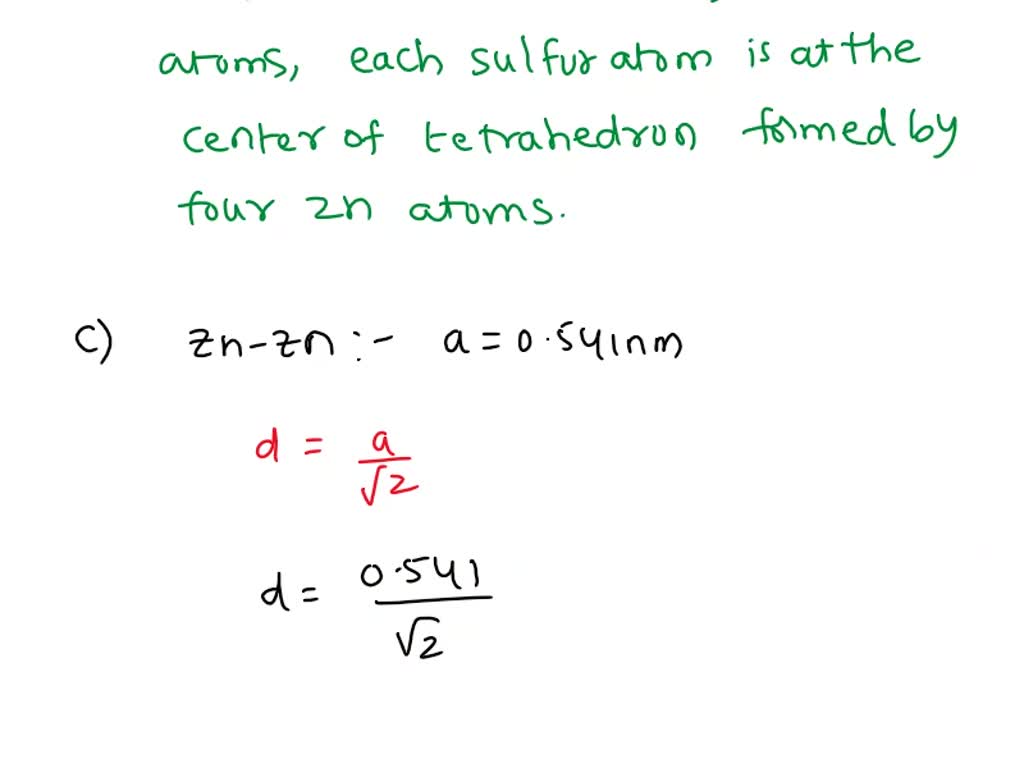 atoms, each sulfur atom is at the
center of tetrahedron formed by
four zn atoms.
c) zn-zn :- a = 0.541nm
d = a/√2
d = 0.541/√2